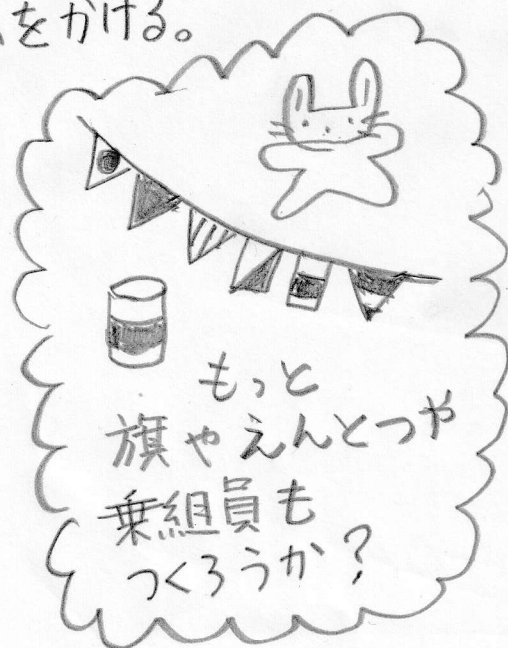 をかける。
もっと
旗やえんとつや
乗組員も
つくろうか？